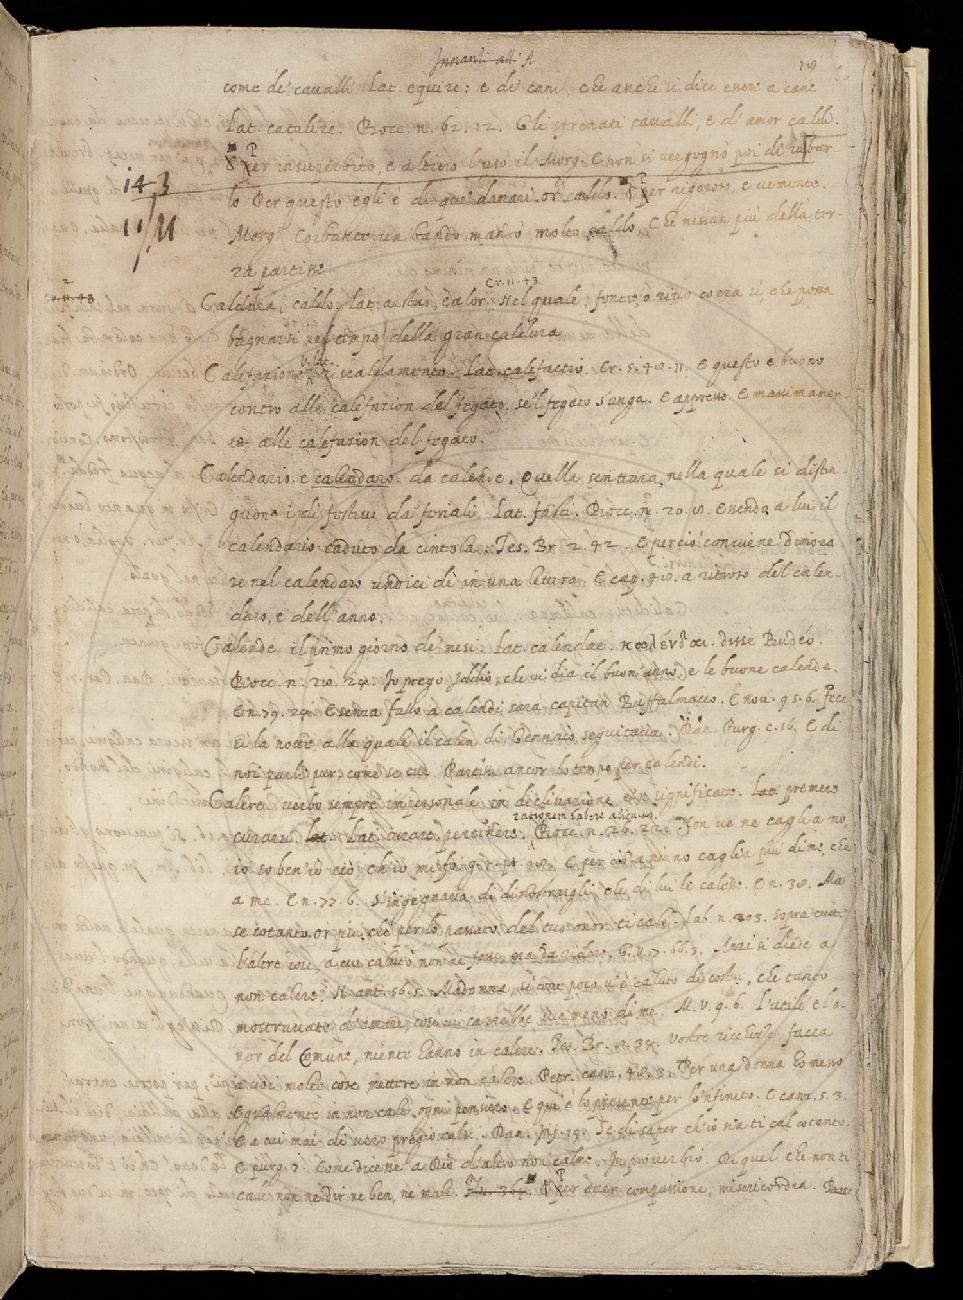 Innanzi all' A
come de' cavalli lat. equire: e de' cani che anche si dice essere a cane
lat. catulire. Bocc. n. 62. 12. Gli sfrenati cavalli, e d' amor caldi.
Per insuperbito, e altiero l' uso il Morg. E non si vergogno poi di rubar-
143
lo Per questo egli è di que' danari or caldo. Per rigoroso, e vemente.
11/11
Morg. un bando mandò molto caldo, Che nessun più della ter-
ra partisse
Caldura, caldo, lat. aestus, calor. Cr. 11. 43 Nel quale, fonte, o rivo corra sì, che possa
bagnarsi nel tempo della gran caldura
Calefazione Riscaldamento. Lat. calefactio. Cr. 5. 48. 11. E questo è buono
contro alle calefazion del fegato, se 'l fegato s' unga. E appresso. E massimamen-
te alle calefazion del fegato.
Calendario. e calendaro. da calende. Quella scrittura, nella quale si distin-
guono i dì festivi da' feriali. Lat. fasti. Bocc. n. 20. Essendo a lui il
calendario caduto da cintola. Tes. Br. 2. 42. E perciò conviene dimora-
re nel calendaro undici dì in una lettera. E cap. 48. a ritroso del calen-
daro, e dell' anno.
Calende il primo giorno de' mesi. lat. calendae. disse Budeo.
Bocc. n. 20. 24. Io prego Iddio, che vi dia il buon anno, e le buone calende.
E n. 79. 24. E senza fallo a calendi sarà capitan Buffalmacco. E nov. 95. 6. Fece
sì la notte alla quale il calen di Gennaio seguitava. Dan. Purg. c. 16. E di
noi parli pur, come se tue Partissi ancor lo tempo per calendi.
Calere verbo sempre impersonale in declinazione, e significato. lat premere
curarsi. lat. curare, pertinere. rationem habere alicuius. Bocc. n. 26. 22. Non ve ne caglia no,
io so ben io ciò, ch' io mi fo. E per ciò a niuno caglia più di me, che
a me. E n. 77. 6. s' ingegnava di dimostrargli, che di lui le calesse. E n. 38. Ma
se cotanto or più, che per lo passato del tuo onor ti cale. Lab. n. 203. sopra tutte
l' altre cose, a cui caluto non ne fosse, era da ridere. G. V. 7. 66. 3. Anzi si diede a
non calere. N. ant. 56. 5. Madonna, sì come poco v' è caluto di costui, che tanto
mostravate d' amare, così vi carrebbe vie meno di me. M. v. 9. 6. l' utile, e l' o-
nor del Comune, niente hanno in calere. Tes. Br. 8. 34. vostre ricchezze faccia
a voi molte cose mettere in non calere. Petr. canz. 48. 3. Per una donna ho messo
Egualmente in non cale ogni pensiero. E qui è lo presente per lo 'nfinito. E canz. 5. 3.
E a cui mai di vero pregio calse. Dan. Inf. 19. Se di saper ch' io sia ti cal cotanto.
E purg. 8. Come dicesse a Dio d' altro non calme. In proverbio. Di quel che non ti
cale non ne dir ne ben, ne male. Per aver compassione, misericordia.